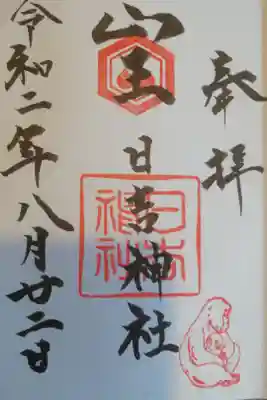 奉拝
山王
日吉神社
日吉神社
令和二年八月廿二日